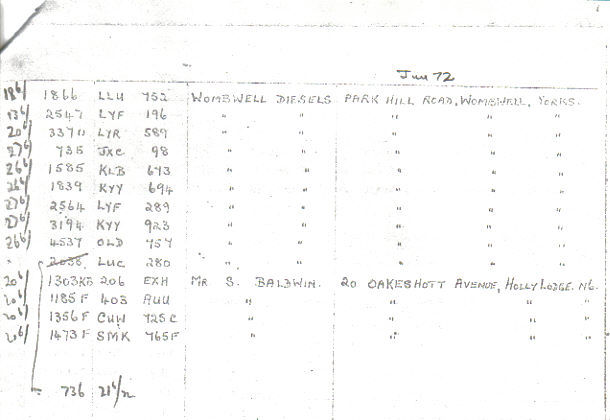 Jun 72
18 6/ 1866 LLU 752 WOMBWELL DIESELS PARK HILL ROAD, WOMBWELL, YORKS.
13 6/ 2547 LYF 196 " " " " "
20 6/ LYR 589 " " " " "
27 6/ 735 JXC 98 " " " " "
26 6/ 1585 KLB 673 " " " " "
26 6/ 1839 KYY 694 " " " " "
27 6/ 2564 LYF 289 " " " " "
27 6/ 3194 KYY 923 " " " " "
26 6/ 4537 OLD 757 " " " " "
" 2038 LUC 280 " " " " "
20 6/ 1303KB 206 EXH MR S. BALDWIN. 20 OAKESHOTT AVENUE, HOLLY LODGE. N6.
20 6/ 1185F 403 " " " "
20 6/ 1356F CUW 725C " " " "
20 6/ 1473F SMK 765F " " " "
736 21 6/72